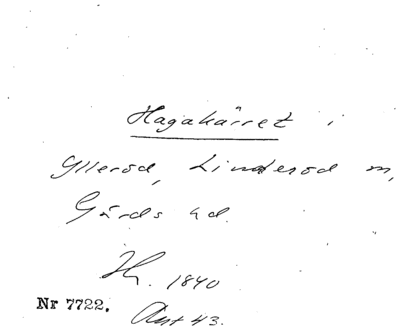 Hagakärret i
Ylleröd, Linderöd m,
Gärds hd.
Hg. 1840
Nr 7722.
Ant 43.